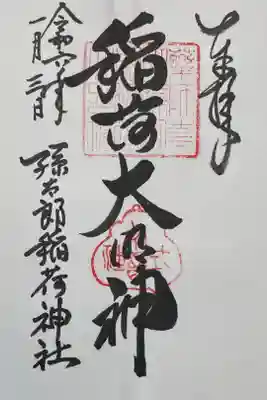 奉拝
稲荷大明神
孫太郎稲荷神社
令和六年
一月三日